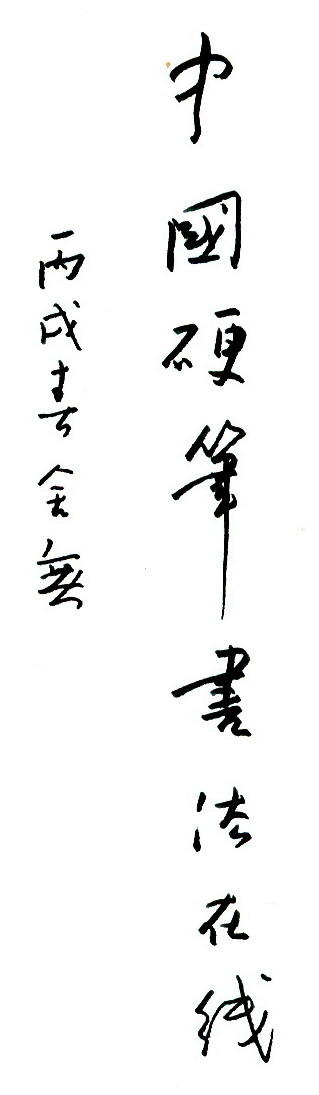 中國硬筆書法在线
丙戌春舍無